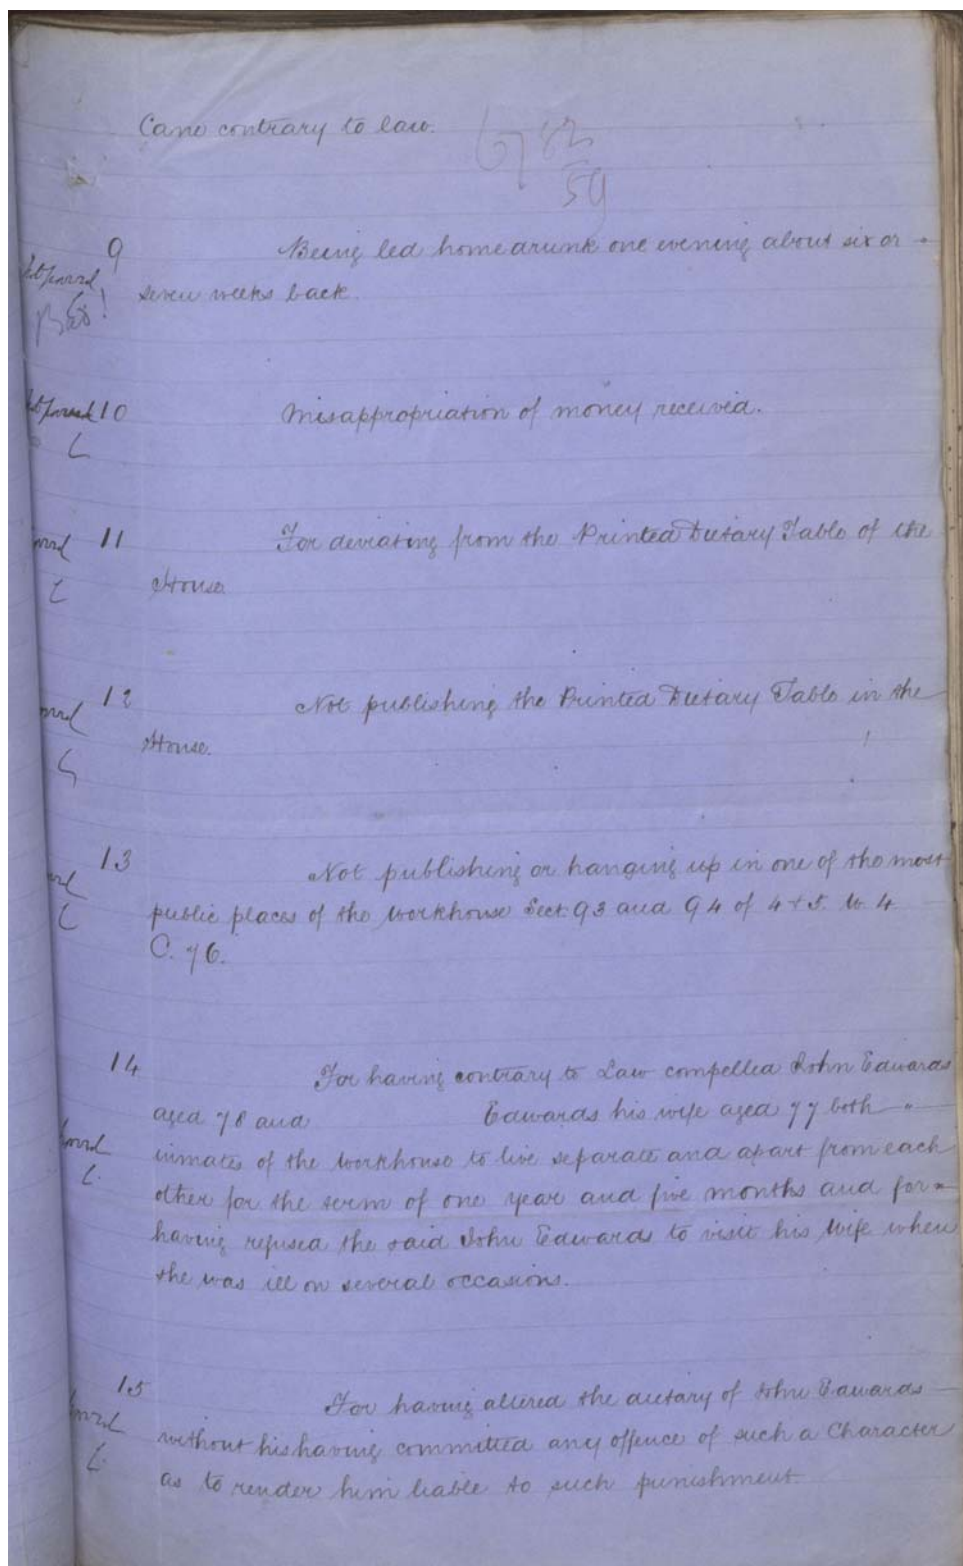 Cane contrary to law.
6782
59
9 Being led home drunk one evening about six or
seven weeks back.
10 Misappropriation of money received.
11 For deviating from the Printed Dietary Table of the
House
12 Not publishing the Printed Dietary Table in the
House.
13 Not publishing or hanging up in one of the most
public places of the Workhouse Sect. 93 and 94 of 4 + 5. W. 4
C. 76.
14 For having contrary to Law compelled John Edwards
aged 78 and Edwards his wife aged 77 both
inmates of the Workhouse to live separate and apart from each
other for the term of one year and five months and for
having refused the said John Edwards to visit his Wife when
she was ill on several occasions.
15 For having altered the dietary of John Edwards
without his having committed any offence of such a Character
as to render him liable to such punishment